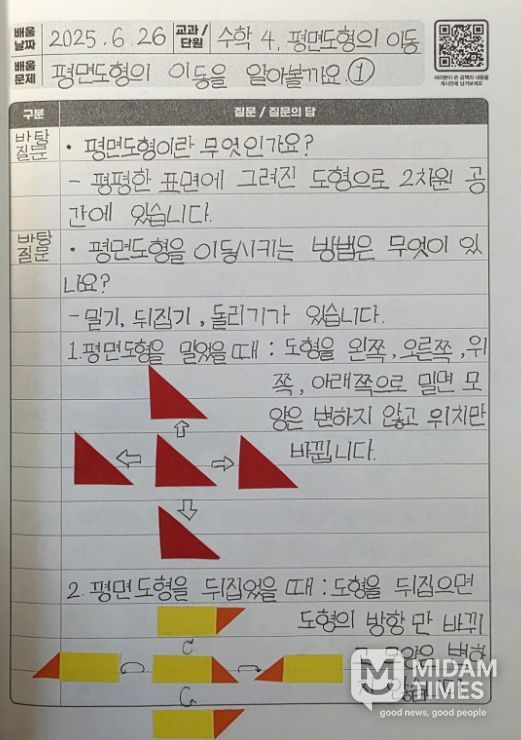 배움 날짜 2025. 6. 26 교과/단원 수학 4. 평면도형의 이동
배움 문제 평면도형의 이동을 알아볼까요 ①
여러분이 쓴 공책의 내용을
게시판에 남겨보세요
구분 질문 / 질문의 답
바탕 질문 • 평면도형이란 무엇인가요?
- 평평한 표면에 그려진 도형으로 2차원 공
간에 있습니다.
바탕 질문 • 평면도형을 이동시키는 방법은 무엇이 있
나요?
- 밀기, 뒤집기, 돌리기가 있습니다.
1. 평면도형을 밀었을 때 : 도형을 왼쪽, 오른쪽, 위
쪽, 아래쪽으로 밀면 모
양은 변하지 않고 위치만
바뀝니다.
2. 평면도형을 뒤집었을 때 : 도형을 뒤집으면
도형의 방향만 바뀌
변하
MIDAM
TIMES
good news, good people